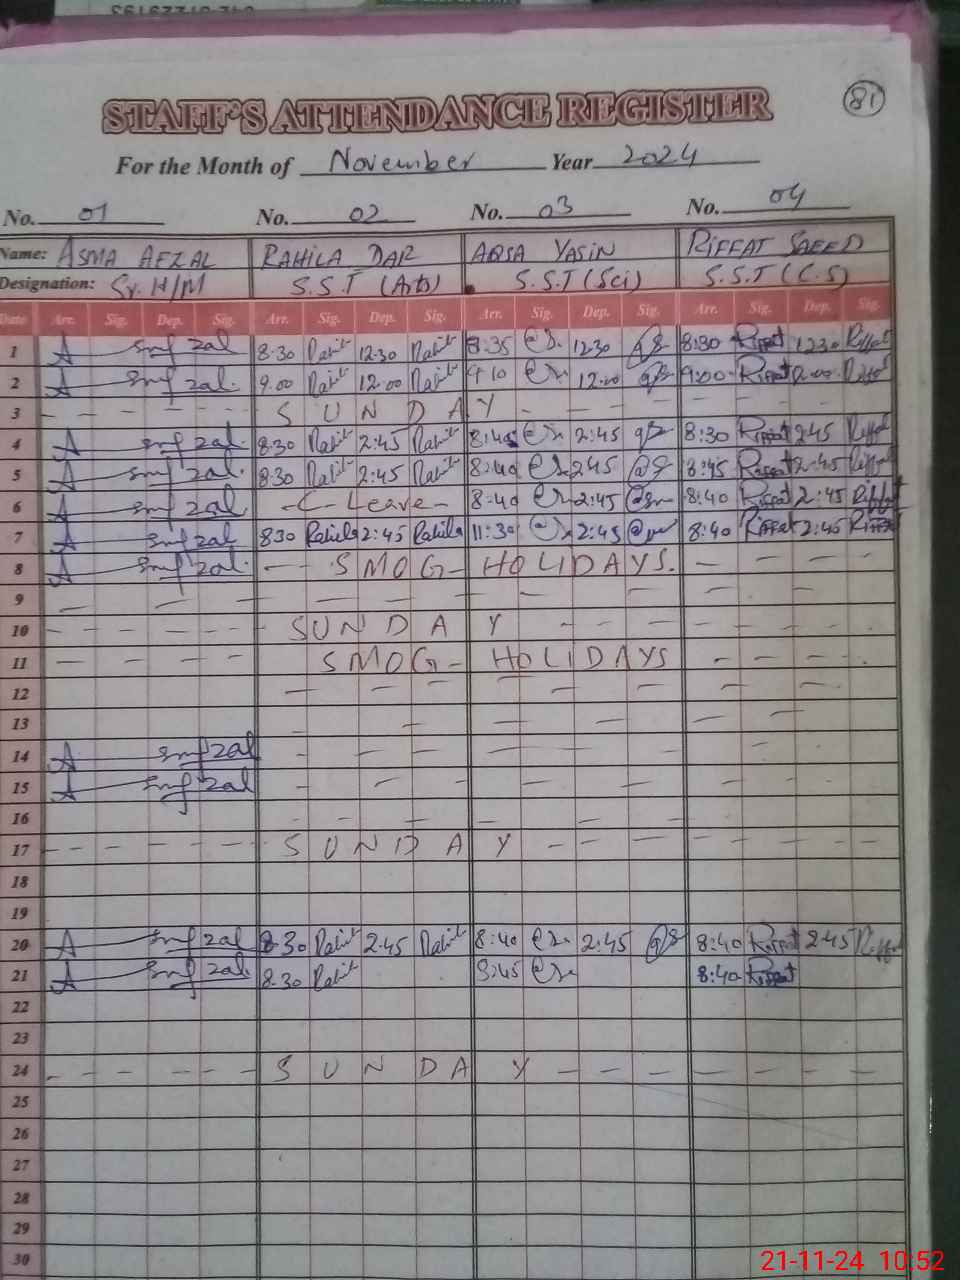 81
STAFF'S ATTENDANCE REGISTER
For the Month of November Year 2024
No. 01 No. 02 No. 03 No. 04
Name: ASMA AFZAL RAHILA DAR AQSA YASIN RIFFAT SAEED
Designation: Sr. H/M S.S.T (Arts) S.S.T (Sci) S.S.T (C.S)
Date Arr. Sig. Dep. Sig. Arr. Sig. Dep. Sig. Arr. Sig. Dep. Sig. Arr. Sig. Dep. Sig.
1 A 8.30 12.30 8:35 12:30 8:30 Riffat 12:30 Riffat
2 A 9.00 12.00 9:00 Riffat
3 SUNDAY
4 A 8.30 2:45 8:45 2:45 8:30 Riffat 2:45 Riffat
5 A 8.30 2:45 8:40 2:45 8:45 Riffat 2:45 Riffat
6 A - C- Leave - 8:40 2:45 8:40 Riffat 2:45 Riffat
7 A 8 30 Rahila 2:45 Rahila 11:30 2:45 8:40 Riffat 2:45 Riffat
8 A SMOG- HOLIDAYS.
9
10 SUNDAY
11 SMOG- HOLIDAYS
12
13
14 A
15 A
16
17 SUNDAY
18
19
20 A 8.30 2.45 8:40 2:45 8:40 Riffat 2:45 Riffat
21 A 8.30 8:45 8:40 Riffat
22
23
24 SUNDAY
25
26
27
28
29
30
21-11-24 10:52